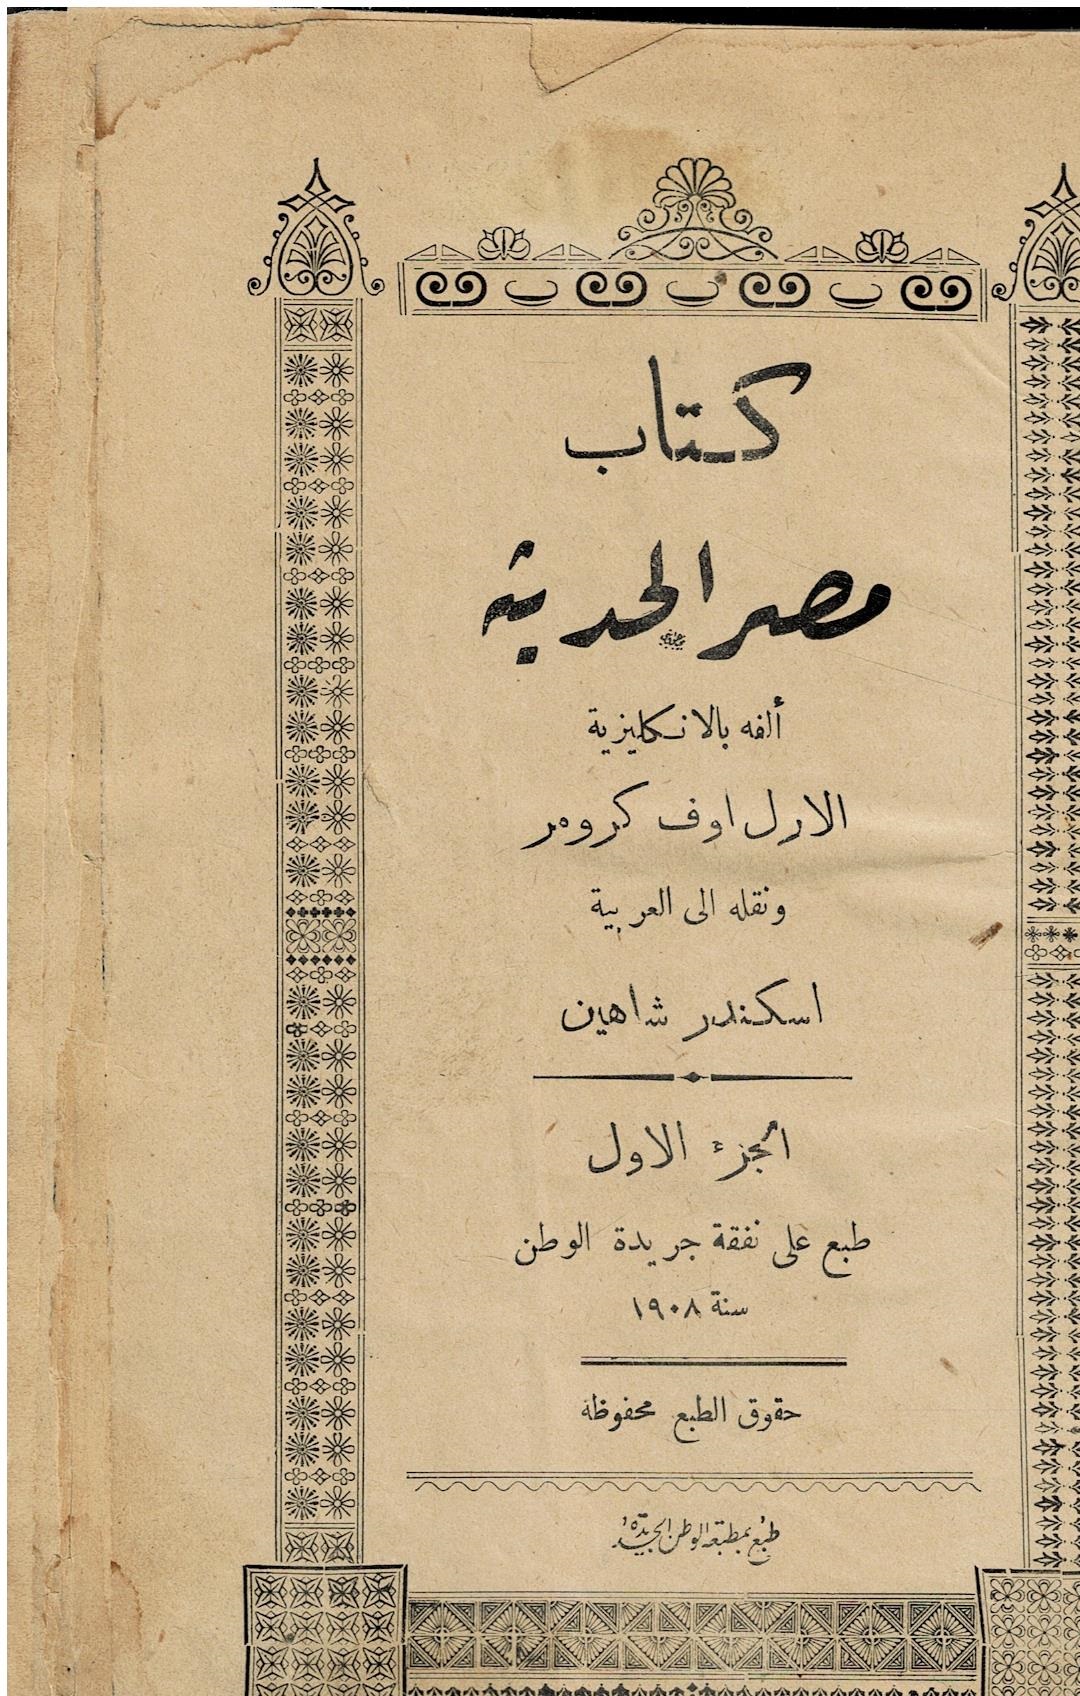 كتاب
مصر الحديثه
ألفه بالانكليزية
الارل اوف كرومر
ونقله الى العربية
اسكندر شاهين
الجزء الاول
طبع على نفقة جريدة الوطن
سنة ١٩٠٨
حقوق الطبع محفوظة
طبع بمطبعة الوطن الجديدة